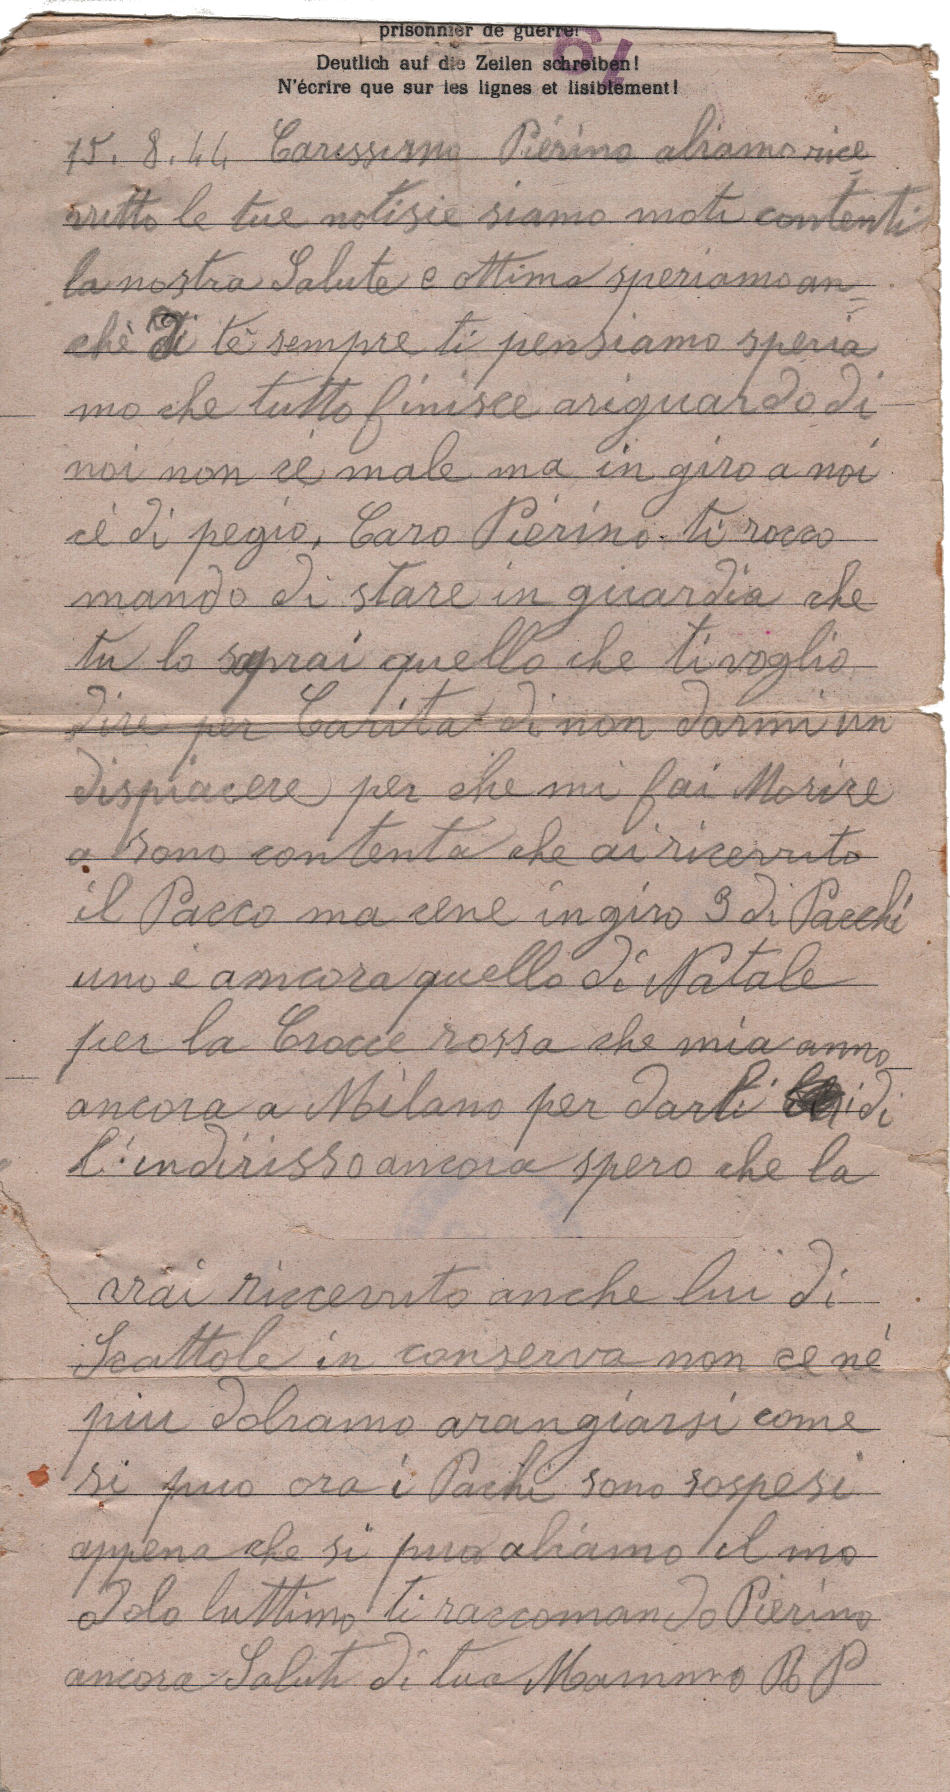 prisonnier de guerre!
61
Deutlich auf die Zeilen schreiben!
N'écrire que sur les lignes et lisiblement!
15. 8. 44 Carissimo Piérino abiamo rice
vutto le tue notisie siamo molti contenti
la nostra Salute e ottima speriamo an
chè di tè sempre ti pensiamo speria
mo che tutto finisce ariguardo di
noi non cé male ma in giro a noi
cé di pegio, Caro Piérino ti racco
mando di stare in guardia che
tu lo saprai quello che ti voglio
dire per Carita di non darmi un
dispiacere per che mi fai Morire
o sono contenta che ai ricevuto
il Pacco ma cene in giro 3 di Pacchi
uno è amcora quello di Natale
per la Crocce rossa che mia anno
ancora a Milano per darli di
l'indirisso ancora spero che la
vrai riccevuto anche lui di
Scattole in conserva non ce né
piu dobiamo arangiarsi come
si puo ora i Pachi sono sospesi
appena che si puo abiamo il mo
dolo luttimo ti raccomando Piérino
ancora Saluti di tua Mamma B P